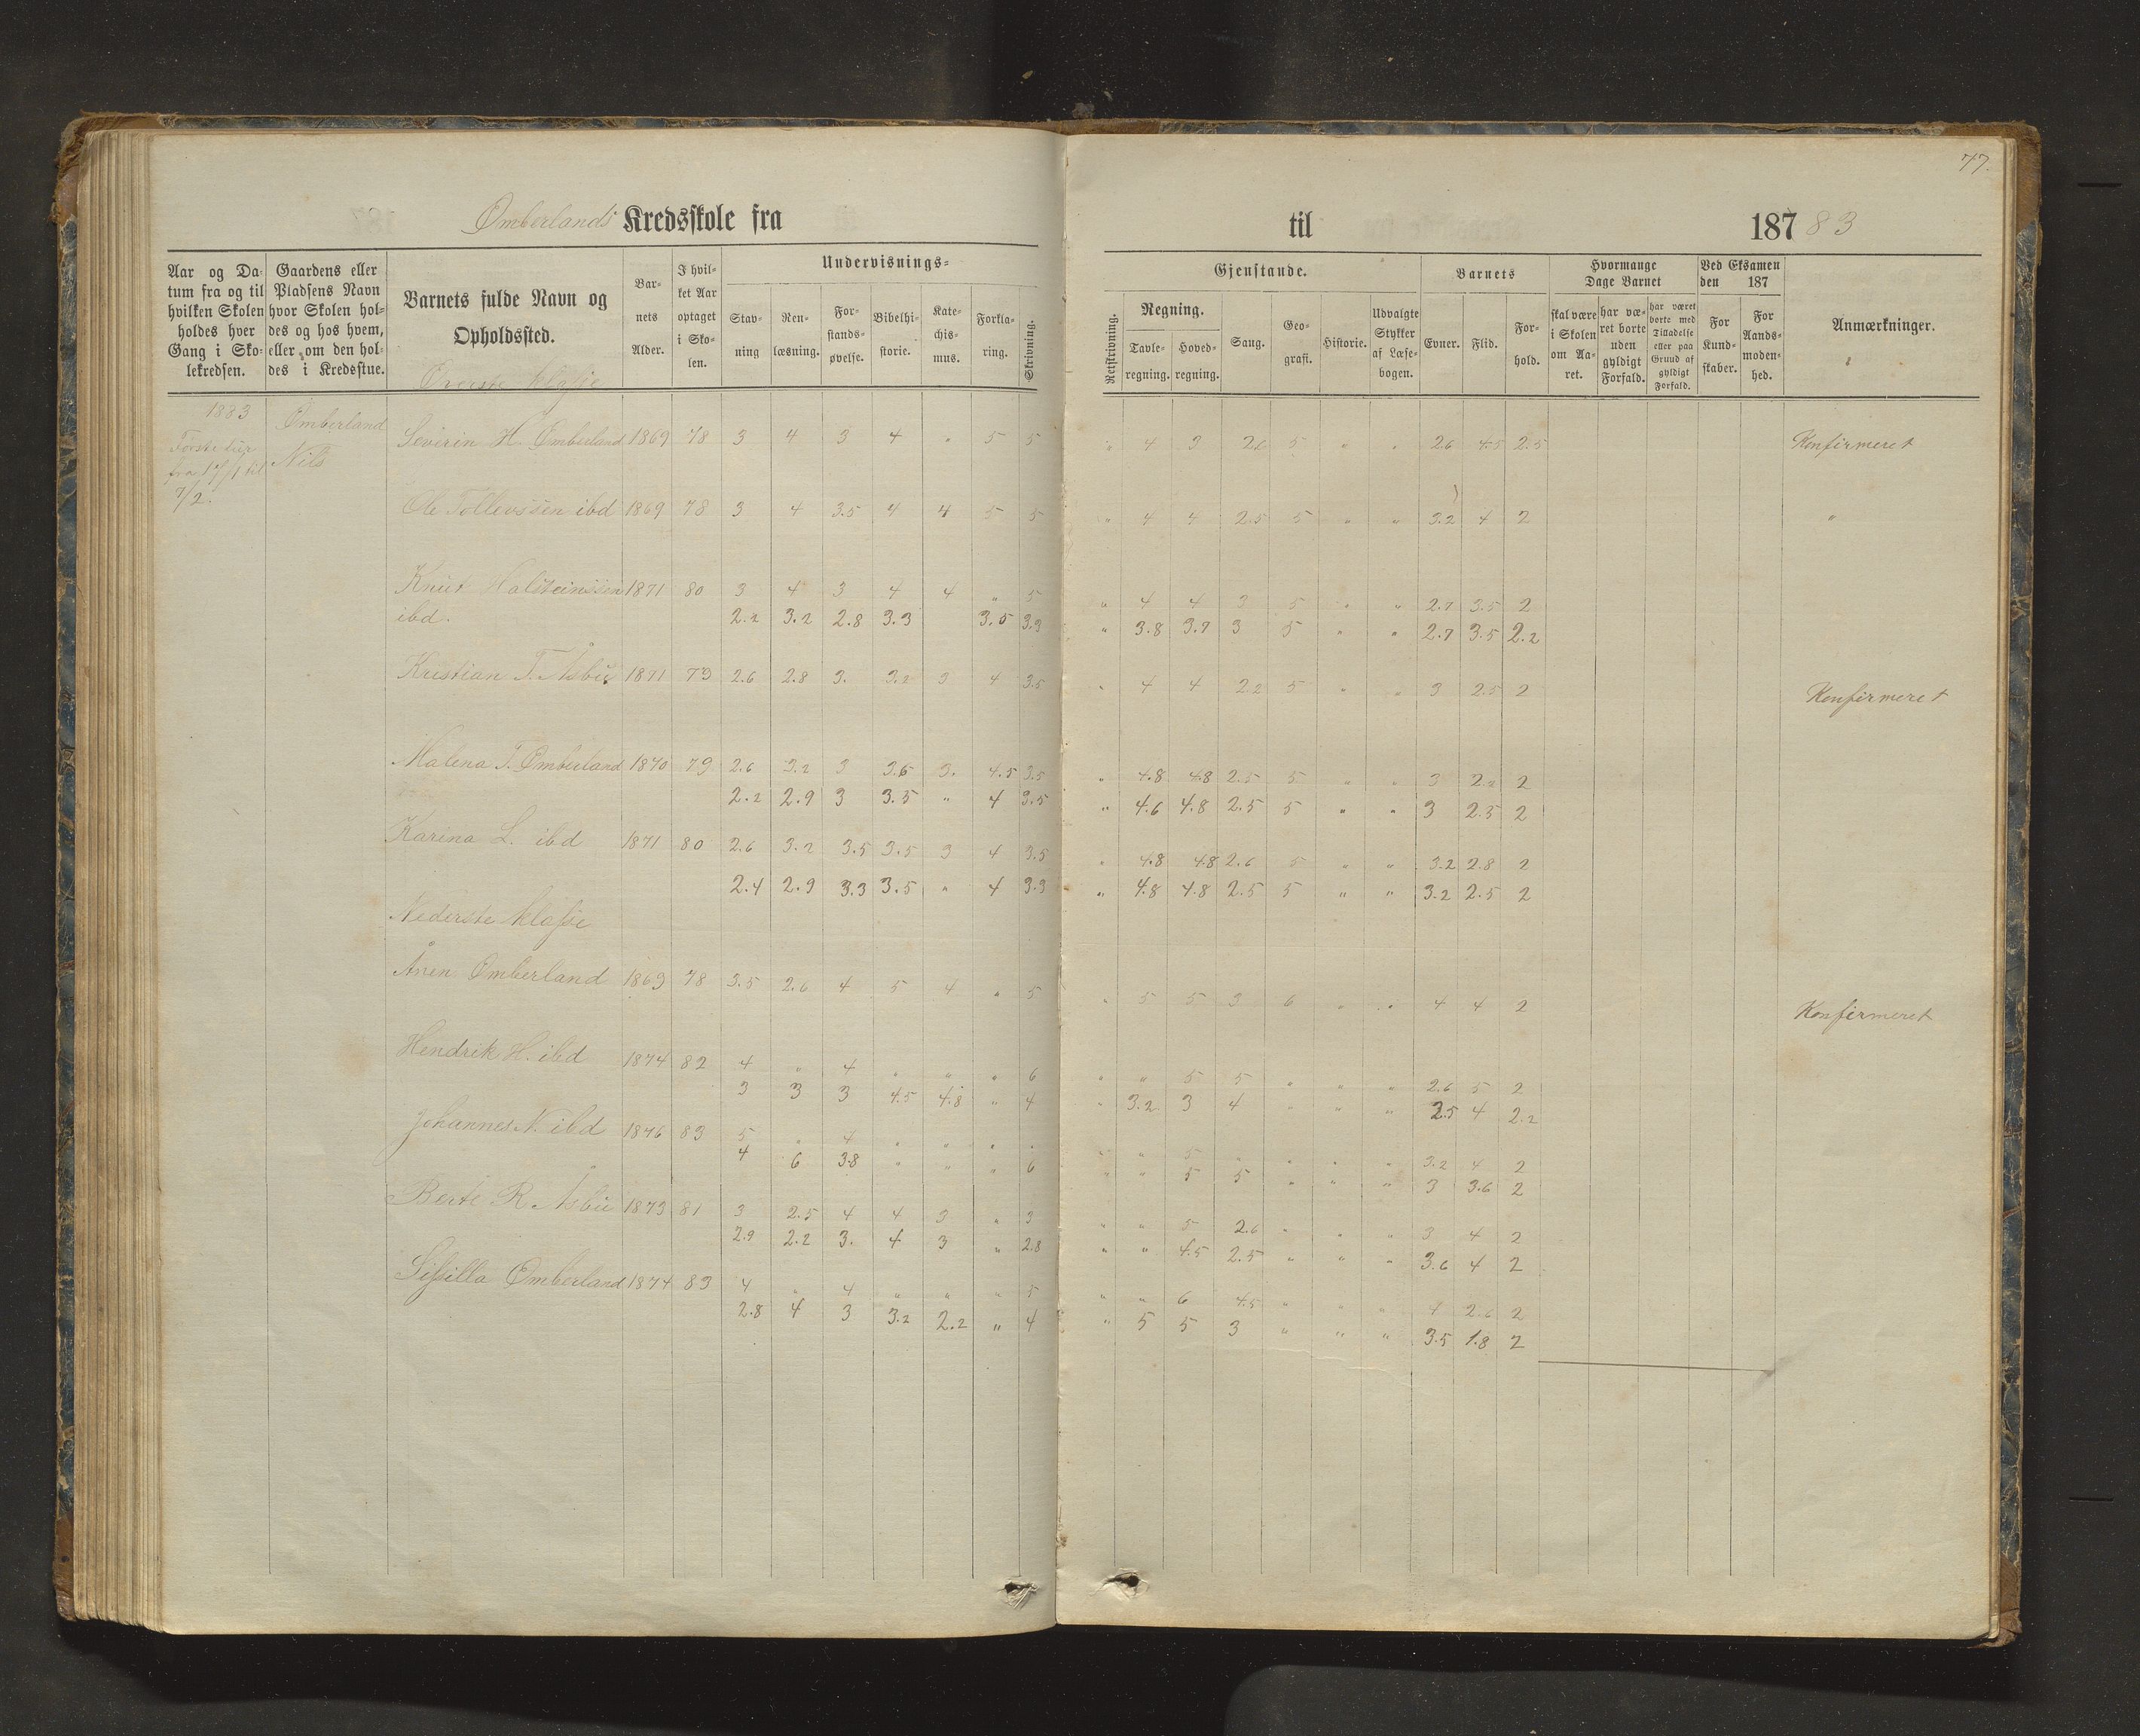 77.
Omberlands Kredsskole fra til 187 83
Aar og Da-
tum fra og til
hvilken Skolen
holdes hver
Gang i Sko-
lekredsen.
Gaardens eller
Pladsens Navn
hvor Skolen hol-
des og hos hvem,
eller om den hol-
des i Kredsstue.
Barnets fulde Navn og
Opholdssted.
Bar-
nets
Alder.
I hvil-
ket Aar
optaget
i Sko-
len.
Undervisnings-
Stav-
ning
Ren-
læsning.
For-
stands-
øvelse.
Bibelhi-
storie.
Kate-
chis-
mus.
Forkla-
ring.
Skrivning.
Gjenstande.
Retskrivning.
Regning.
Tavle-
regning.
Hoved-
regning.
Sang.
Geo-
grafi.
Historie.
Udvalgte
Stykker
af Læse-
bogen.
Barnets
Evner.
Flid.
For-
hold.
Hvormange
Dage Barnet
skal være
i Skolen
om Aa-
ret.
har væ-
ret borte
uden
gyldigt
Forfald.
har været
borte med
Tilladelse
eller paa
Grund af
gyldigt
Forfald.
Ved Eksamen
den 187
For
Kund-
skaber.
For
Aands-
moden-
hed.
Anmærkninger.
Øverste klasse
1883
Første tur
fra 17/1 til
7/2.
Omberland
Nils
Severin H. Omberland 1869 78 3 4 3 4 " 5 5 " 4 3 2.6 5 " " 2.6 4.5 2.5 Konfirmeret
Ole Tollevssen ibd 1869 78 3 4 3.5 4 4 5 5 " 4 4 2.5 5 " " 3.2 4 2 "
Knut Halsteinssen 1871 80 3 4 3 4 4 " 5 " 4 4 3 5 " " 2.7 3.5 2
ibd. 2.2 3.2 2.8 3.3 3.5 3.3 " 3.8 3.7 3 5 " " 2.7 3.5 2.2
Kristian T. Åsbü 1871 79 2.6 2.8 3. 3.2 3 4 3.5 " 4 4 2.2 5 " " 3 2.5 2 Konfirmeret
Malena T. Omberland 1870 79 2.6 3.2 3 3.6 3. 4.5 3.5 " 4.8 4.8 2.5 5 " " 3 2.2 2
2.2 2.9 3 3.5 " 4 3.5 " 4.6 4.8 2.5 5 " " 3 2.5 2
Karina L. ibd 1871 80 2.6 3.2 3.5 3.5 3 4 3.5 " 4.8 4.8 2.6 5 " " 3.2 2.8 2
2.4 2.9 3.3 3.5 " 4 3.3 " 4.8 4.8 2.5 5 " " 3.2 2.5 2
Nederste klasse
Ånen Omberland 1869 78 3.5 2.6 4 5 4 " 5 " 5 5 3 6 " " 4 4 2 Konfirmeret
Hendrik H. ibd 1874 82 4 " 4 " " " 6 " " 5 5 " " " 2.6 5 2
3 3 3 4.5 4.8 " 4 " 3.2 3 4 " " " 2.5 4 2.2
Johannes N. ibd 1876 83 5 " 4 " " " " " " 5 " " " " 3.2 4 2
4 6 3.8 " " " 6 " " 5 5 " " " 3 3.6 2
Berte R. Åsbü 1873 81 3 2.5 4 4 3 " 3 " " 5 2.6 " " " 3 4 2
2.9 2.2 3. 4 3 " 2.8 " " 4.5 2.5 " " " 3.6 4 2
Sissilla Omberland 1874 83 4 " 4 " " " 5 " " 6 4.5 " " " 4 2.6 2
2.8 4 3 3.2 2.2 " 4 " 5 5 3 " " " 3.5 1.8 2